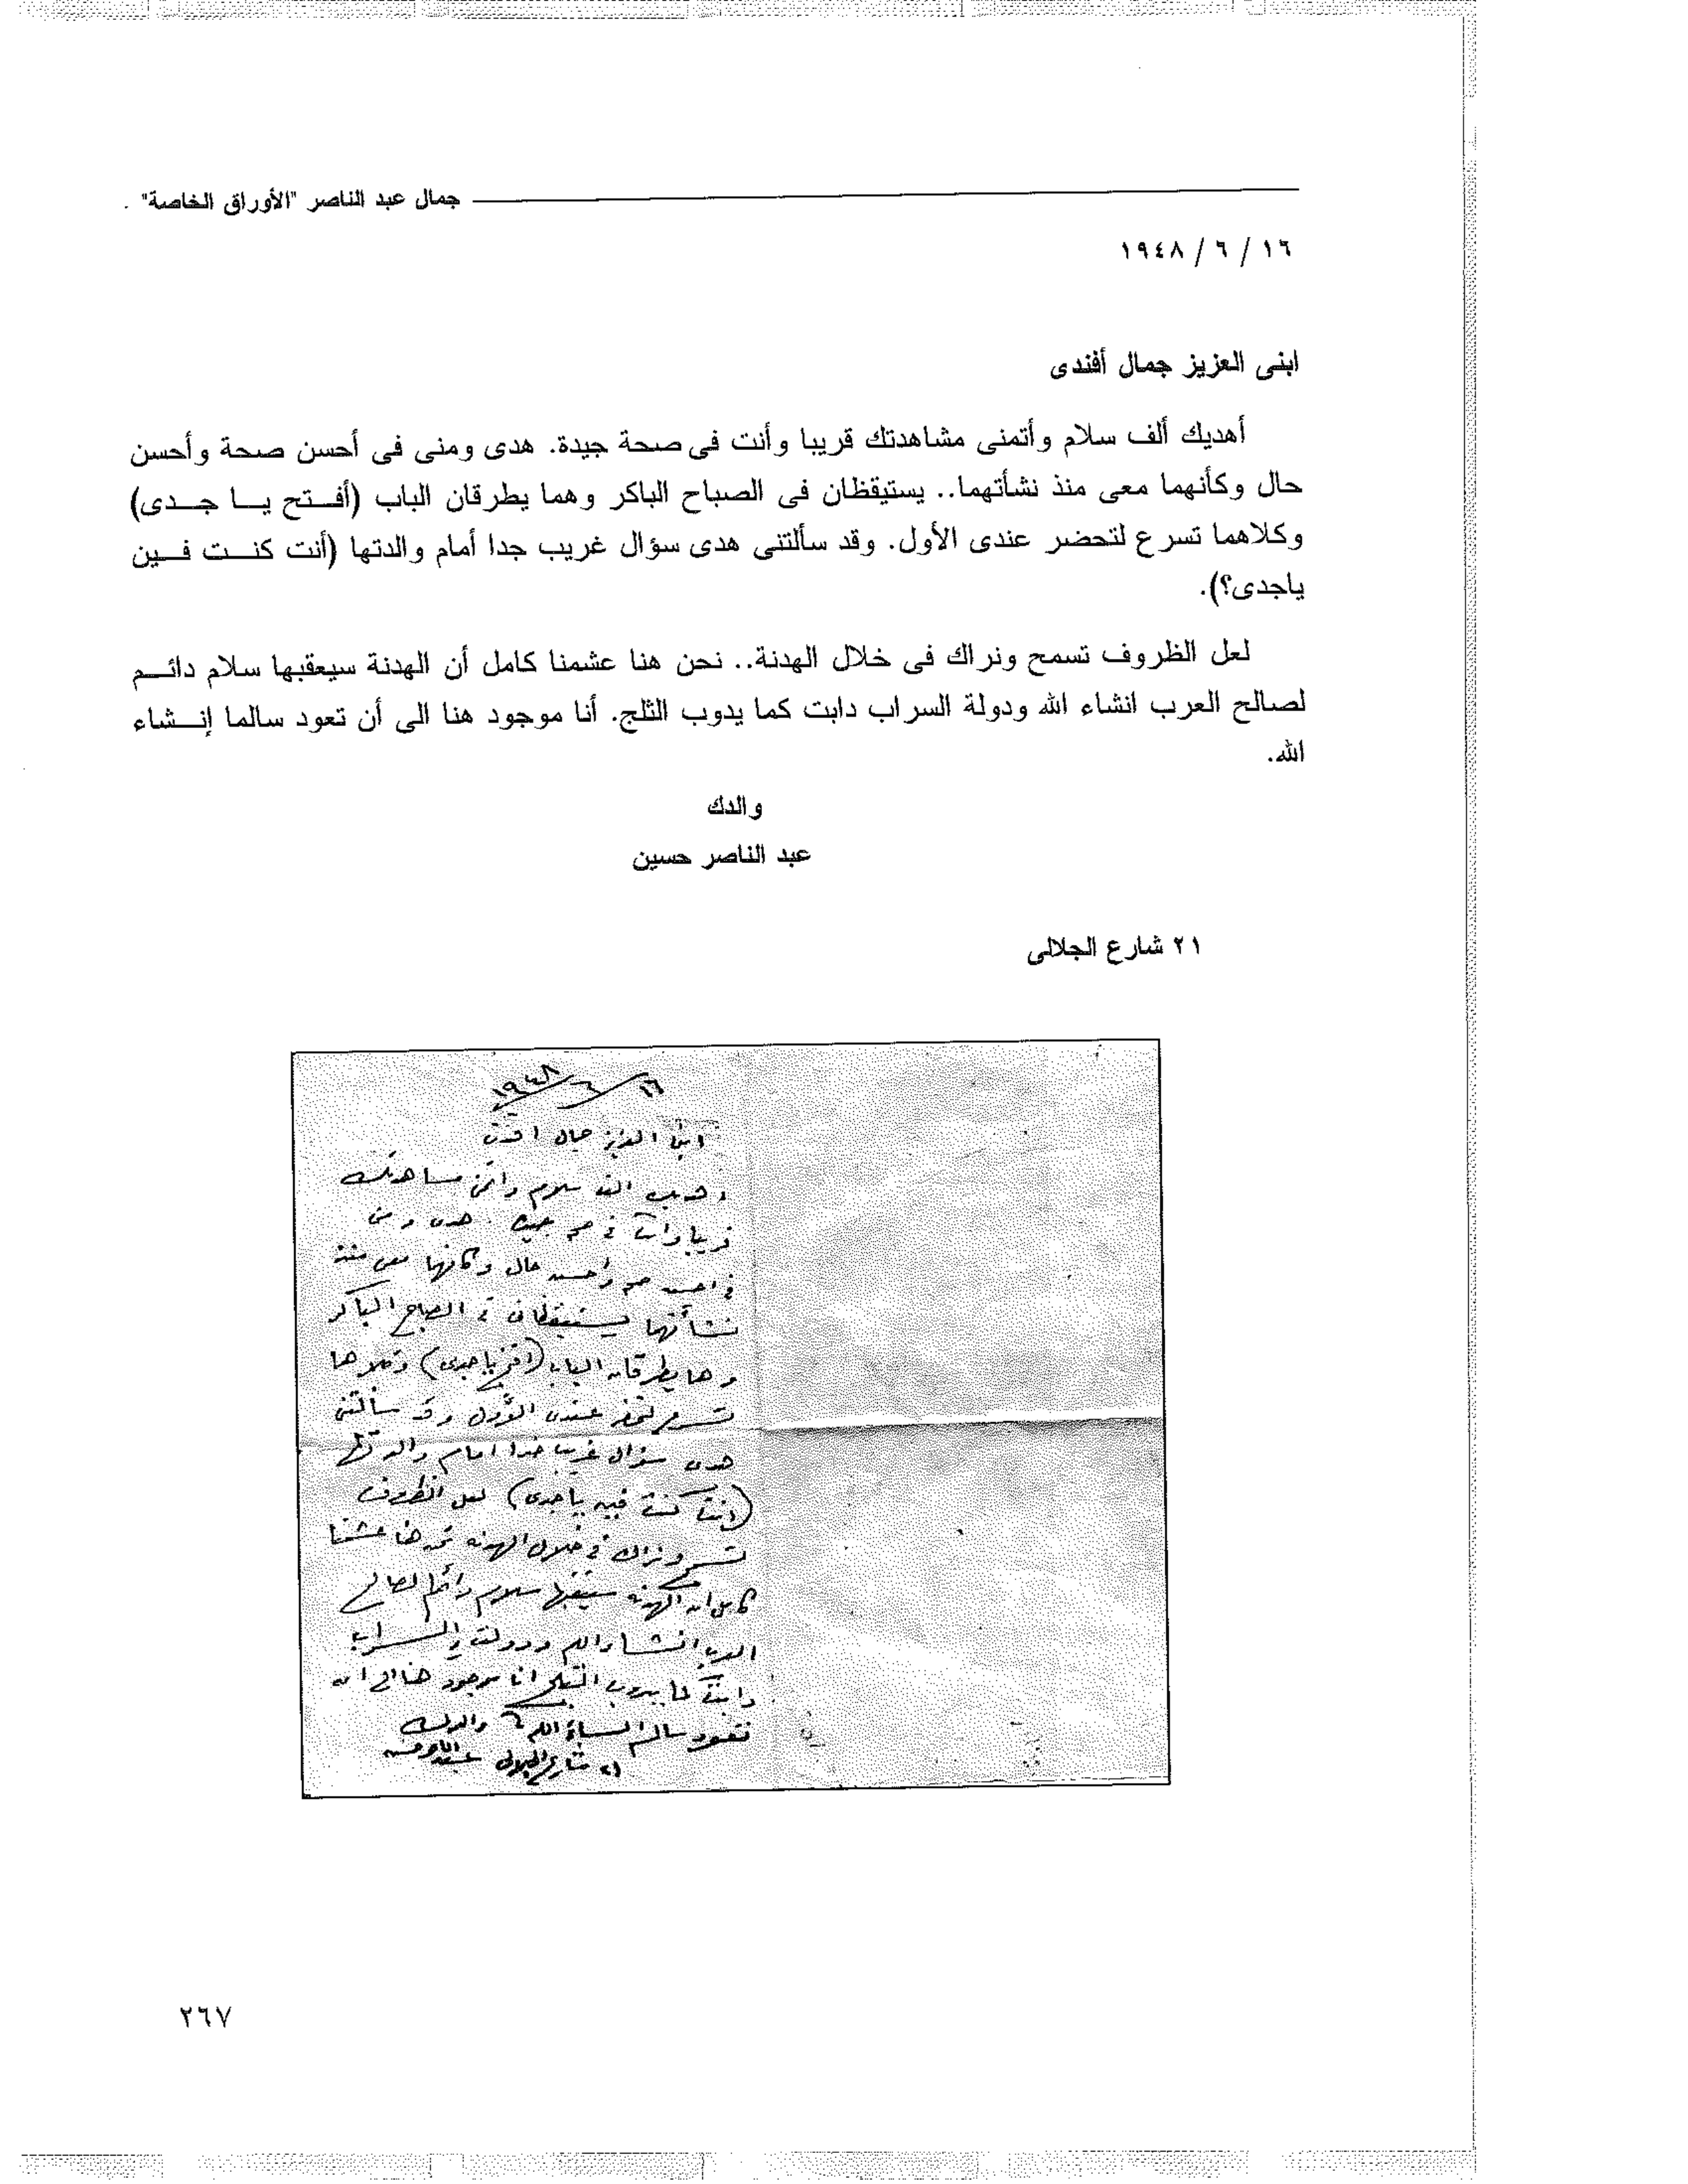 جمال عبد الناصر "الأوراق الخاصة" .
١٦ / ٦ / ١٩٤٨
ابنى العزيز جمال أفندى
أهديك ألف سلام وأتمنى مشاهدتك قريبا وأنت فى صحة جيدة. هدى ومنى فى أحسن صحة وأحسن
حال وكأنهما معى منذ نشأتهما.. يستيقظان فى الصباح الباكر وهما يطرقان الباب (أفـتح يـا جـدى)
وكلاهما تسرع لتحضر عندى الأول. وقد سألتنى هدى سؤال غريب جدا أمام والدتها (أنت كنـت فـين
ياجدى؟).
لعل الظروف تسمح ونراك فى خلال الهدنة.. نحن هنا عشمنا كامل أن الهدنة سيعقبها سلام دائـم
لصالح العرب انشاء الله ودولة السراب دابت كما يدوب الثلج. أنا موجود هنا الى أن تعود سالما إنـشاء
الله.
والدك
عبد الناصر حسين
٢١ شارع الجلالى
١٦/٦/١٩٤٨
ابنى العزيز جمال افندى
اهديك الف سلام واتمنى مشاهدتك
قريبا وانت فى صحه جيده . هدى ومنى
فى احسن صحه واحسن حال وكأنهما معى منذ
نشأتهما يستيقظان فى الصباح الباكر
وهما يطرقان الباب (افتح ياجدى) وكلاهما
تسرع لتحضر عندى الأول وقد سألتنى
هدى سؤال غريب جدا امام والدتها
(انت كنت فين ياجدى) لعل الظروف
تسمح ونراك فى خلال الهدنه نحن هنا عشمنا
كامل ان الهدنه سيعقبها سلام دائم لصالح
العرب انشاء الله ودولة السراب
دابت كما يدوب الثلج انا موجود هنا الى ان
تعود سالم انشاء الله والدك
٢١ شارع الجلالى عبد الناصر حسين
٢٦٧